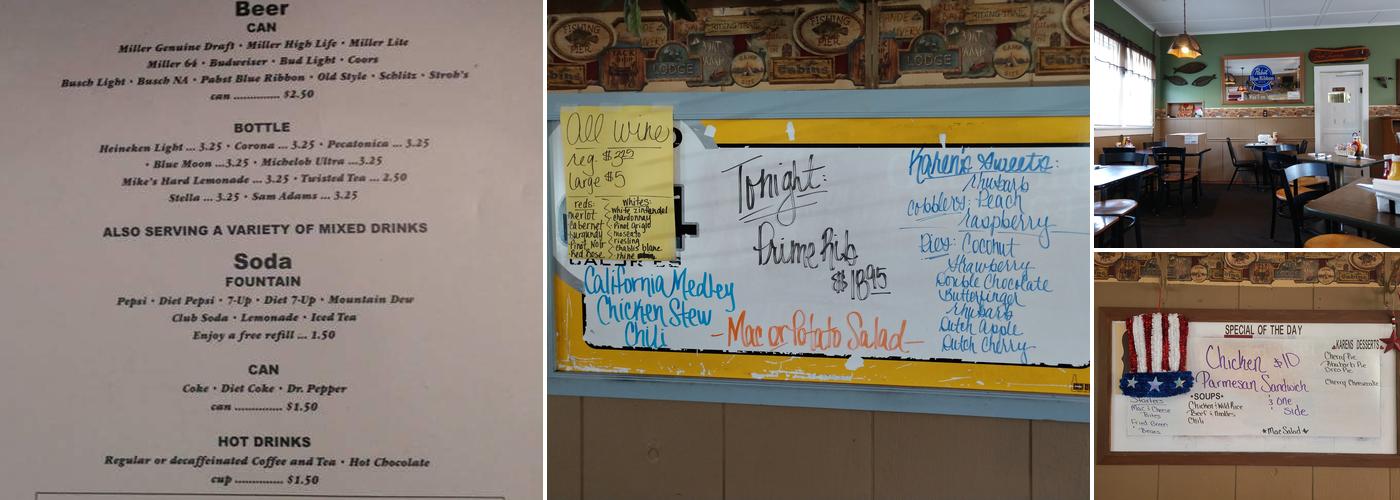 Beer
CAN
Miller Genuine Draft • Miller High Life • Miller Lite
Miller 64 • Budweiser • Bud Light • Coors
Busch Light • Busch NA • Pabst Blue Ribbon • Old Style • Schlitz • Stroh's
can .............. $2.50
BOTTLE
Heineken Light ... 3.25 • Corona ... 3.25 • Pecatonica ... 3.25
• Blue Moon ...3.25 • Michelob Ultra ...3.25
Mike's Hard Lemonade ... 3.25 • Twisted Tea ... 2.50
Stella ... 3.25 • Sam Adams ... 3.25
ALSO SERVING A VARIETY OF MIXED DRINKS
Soda
FOUNTAIN
Pepsi • Diet Pepsi • 7-Up • Diet 7-Up • Mountain Dew
Club Soda • Lemonade • Iced Tea
Enjoy a free refill ... 1.50
CAN
Coke • Diet Coke • Dr. Pepper
can .............. $1.50
HOT DRINKS
Regular or decaffeinated Coffee and Tea • Hot Chocolate
cup .............. $1.50
FISHING PIER
LODGE
CAMP SITE
Cabins
FISHING PIER
LODGE
CAMP SITE
Cabins
All wine
reg. $3.25
large $5
reds:
merlot
cabernet
burgundy
Pinot Noir
Red Rose
whites:
white zinfandel
chardonnay
Pinot Grigio
moscato
riesling
chablis blanc
rhine
California Medley
Chicken Stew
Chili
Tonight:
Prime Rib
$18.95
-Mac or Potato Salad-
Karen's Sweets:
rhubarb
cobblers: Peach
raspberry
Pies: Coconut
Strawberry
Double Chocolate
Butterfinger
rhubarb
Dutch Apple
Dutch Cherry
Pabst
Blue Ribbon
SPECIAL OF THE DAY
Chicken $10
Parmesan Sandwich
& one
side
•SOUPS•
Chicken & Wild Rice
Beef & Noodles
Chili
Starters
Mac & Cheese
Bites
Fried Green
Beans
*Mac Salad*
KARENS DESSERTS
Cherry Pie
Rhubarb Pie
Oreo Pie
Cherry Cheesecake